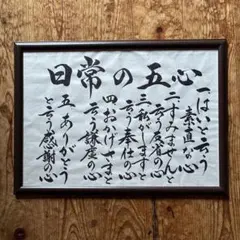 日常の五心
一はいと言う
素直な心
二すみませんと
言う反省の心
三私がしますと
言う奉仕の心
四、おかげさまと
言う謙虚の心
五 ありがとう
と言う感謝の心